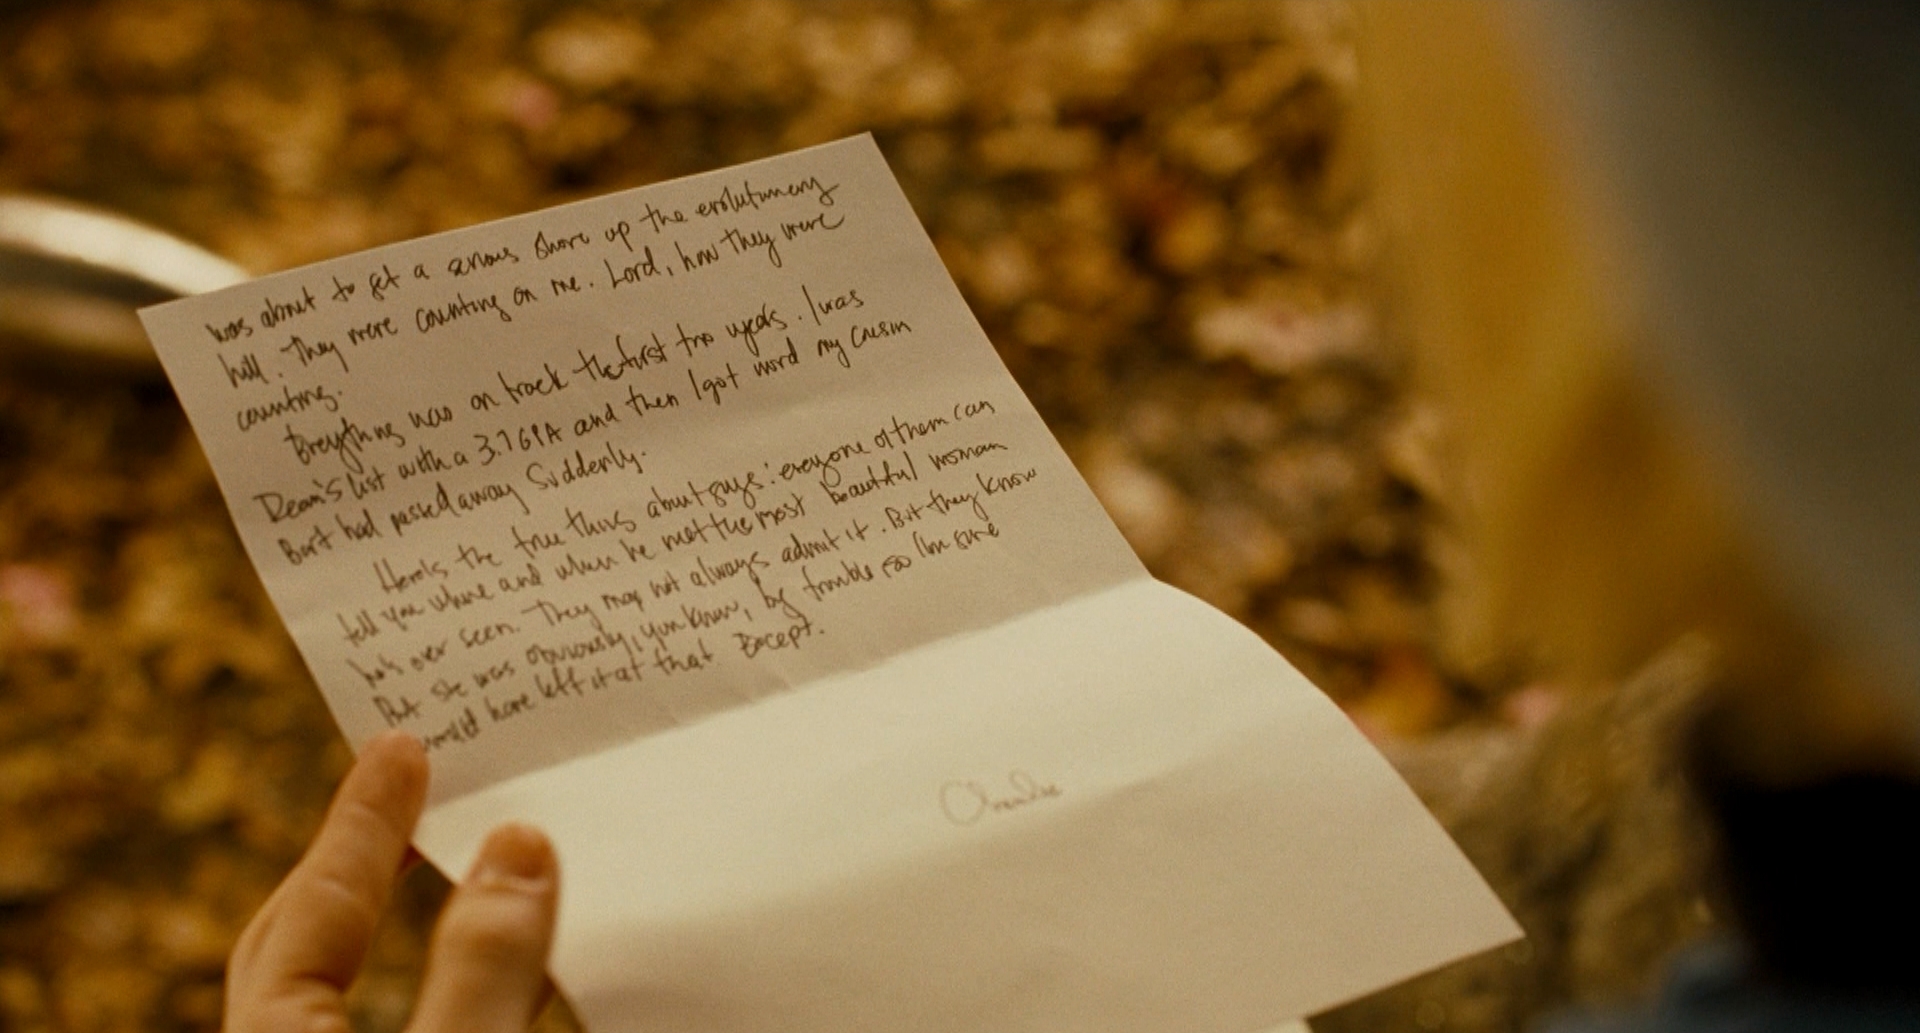 was about to get a serious shove up the evolutionary
hill. They were counting on me. Lord, how they were
counting.
Everything was on track the first two years. I was
Dean's list with a 3.7 GPA and then I got word my cousin
Bart had passed away suddenly.
Here's the true thing about guys: everyone of them can
tell you where and when he met the most beautiful woman
he's ever seen. They may not always admit it. But they know
But she was obviously, you know, big trouble so I'm sure
would have left it at that Except.